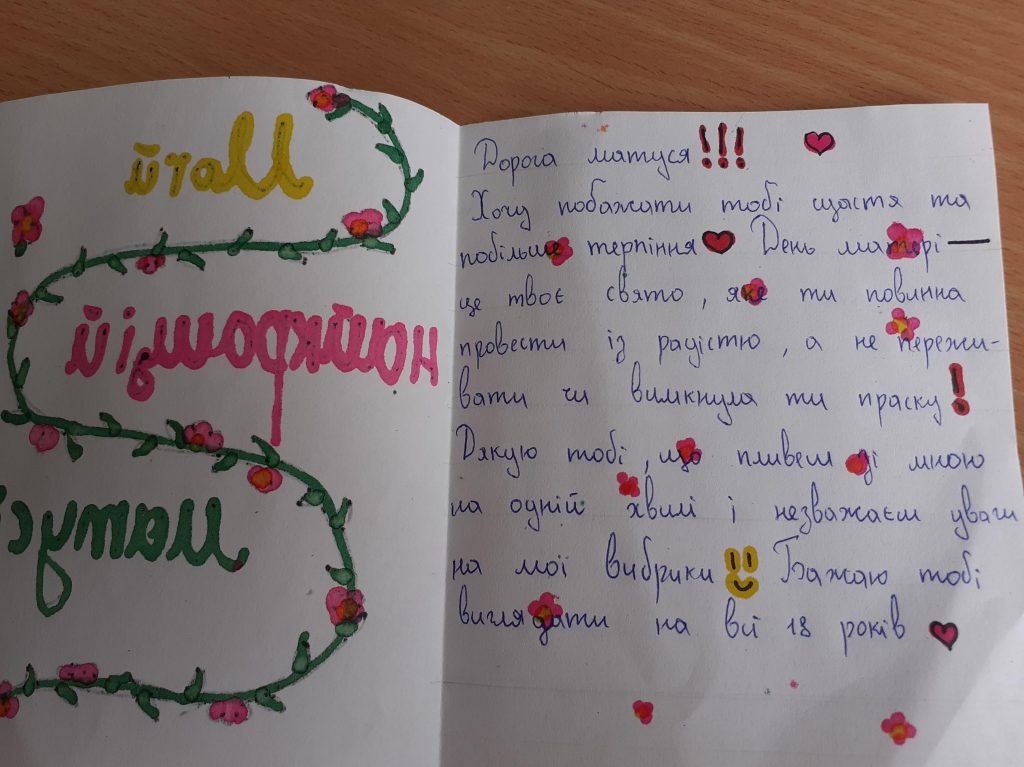 Моїй
найкращій
матус
Дорога матуся!!!
Хочу побажати тобі щастя та
побільше терпіння День матері —
це твоє свято, яке ти повинна
провести із радістю, а не пережи-
вати чи вимкнула ти праску!
Дякую тобі, що пливеш зі мною
на одній хвилі і незважаєш уваги
на мої вибрики Бажаю тобі
виглядати на всі 18 років